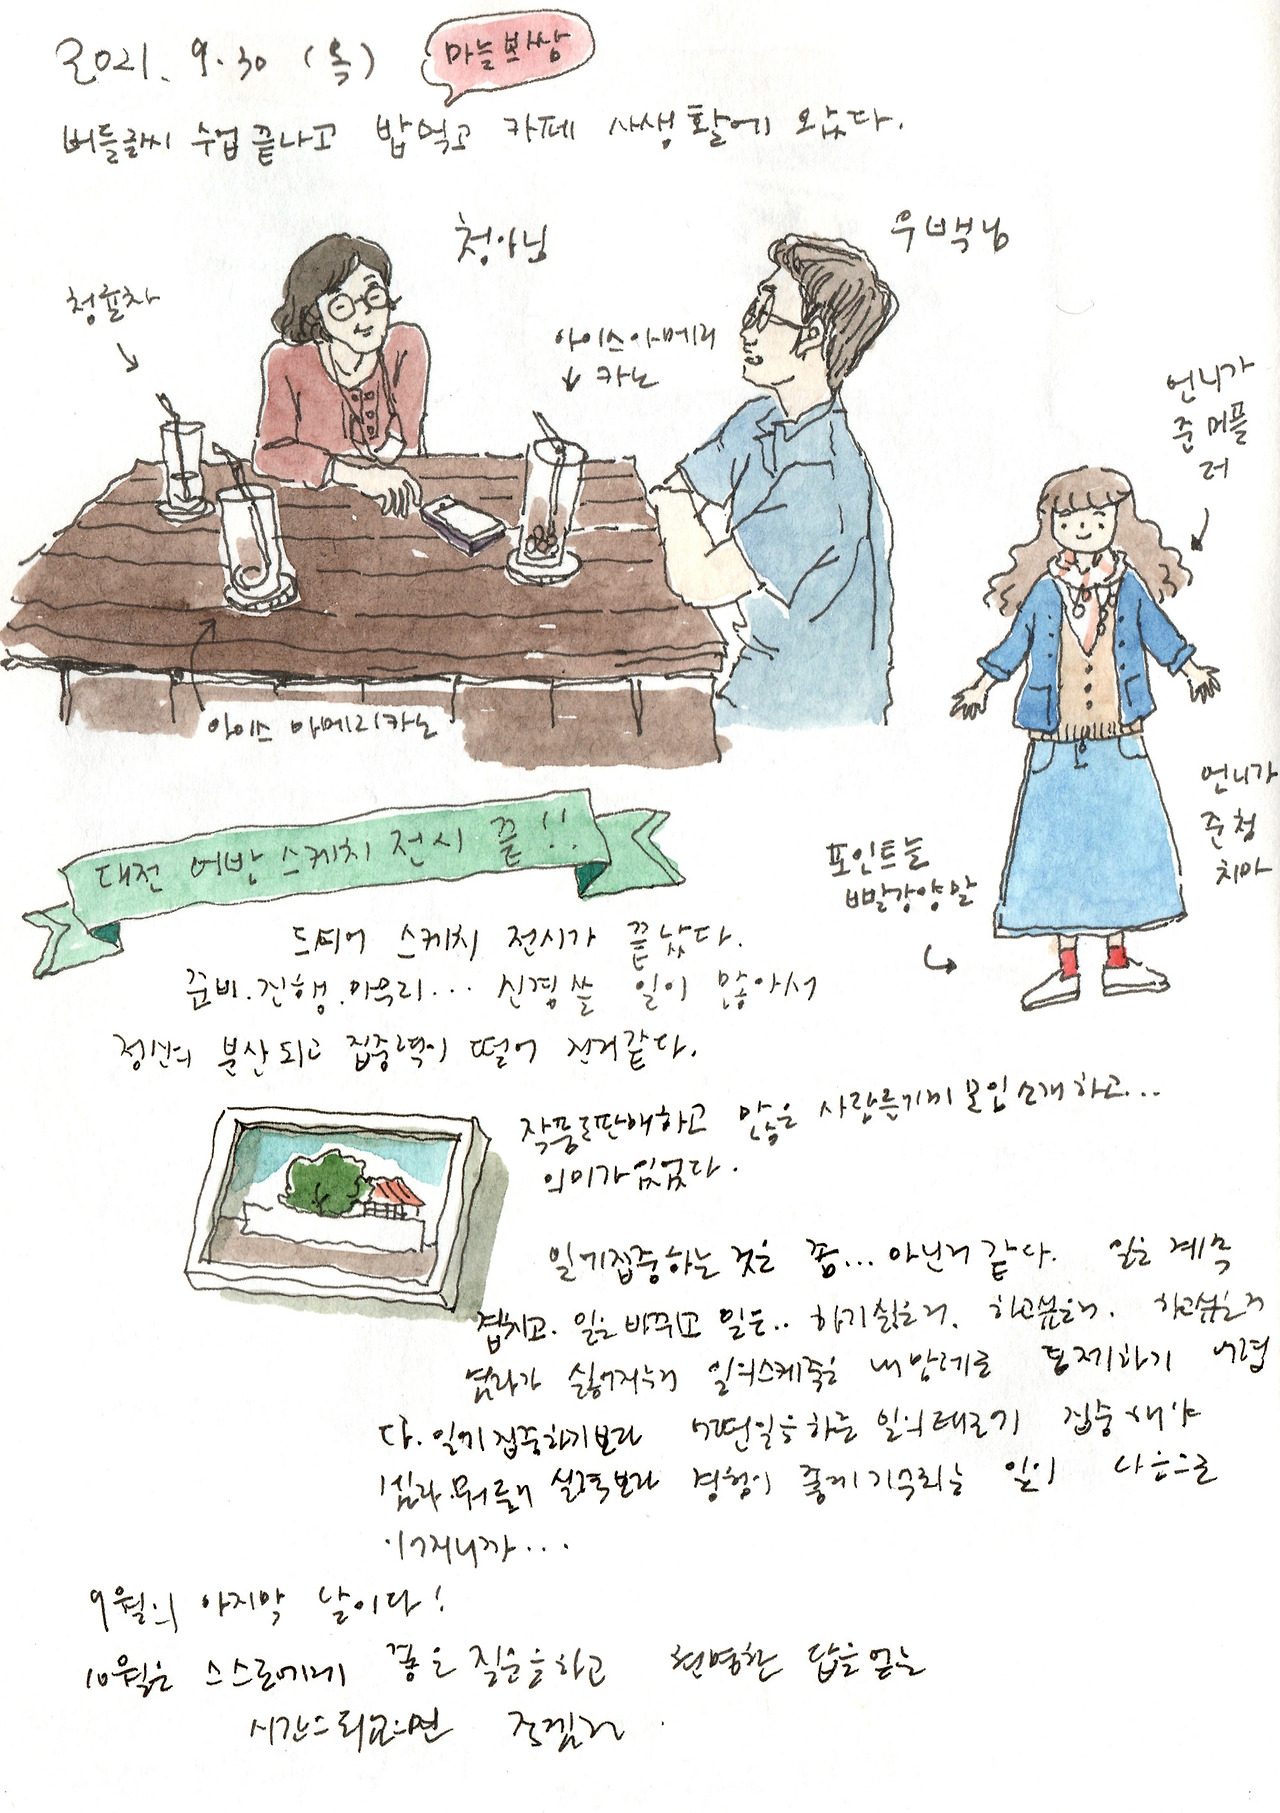 2021. 9. 30 (목)
마늘보쌈
버들글씨 수업 끝나고 밥먹고 카페 사생활에 왔다.
청아님
우백님
청귤차
아이스아메리
카노
언니가
준 머플
러
아이스 아메리카노
언니가
준 청
치마
포인트는
빨강양말
대전 어반스케치 전시 끝!!
드디어 스케치 전시가 끝났다.
준비.진행.마무리... 신경쓸 일이 많아서
정신이 분산되고 집중력이 떨어 진거같다.
작품도판매하고 많은 사람들에게 모임소개하고...
의미가있었다.
일에집중하는 것은 좀... 아닌거 같다. 일은 계속
겹치고. 일은 바뀌고 일은.. 하기싫은거. 하고싶은거. 하고싶은거
였다가 싫어지는거 일의스케줄을 내 맘대로 통제하기 어렵
다. 일에 집중하기보다 어떤일을하는 일의태도에 집중해야
겠다. 뭐든 실력보다 경험이 좋게기억되는 일이 다음으로
이어지니까...
9월의 마지막 날이다!
10월은 스스로에게 좋은 질문을하고 현명한 답을얻는
시간이되었으면 좋겠다.